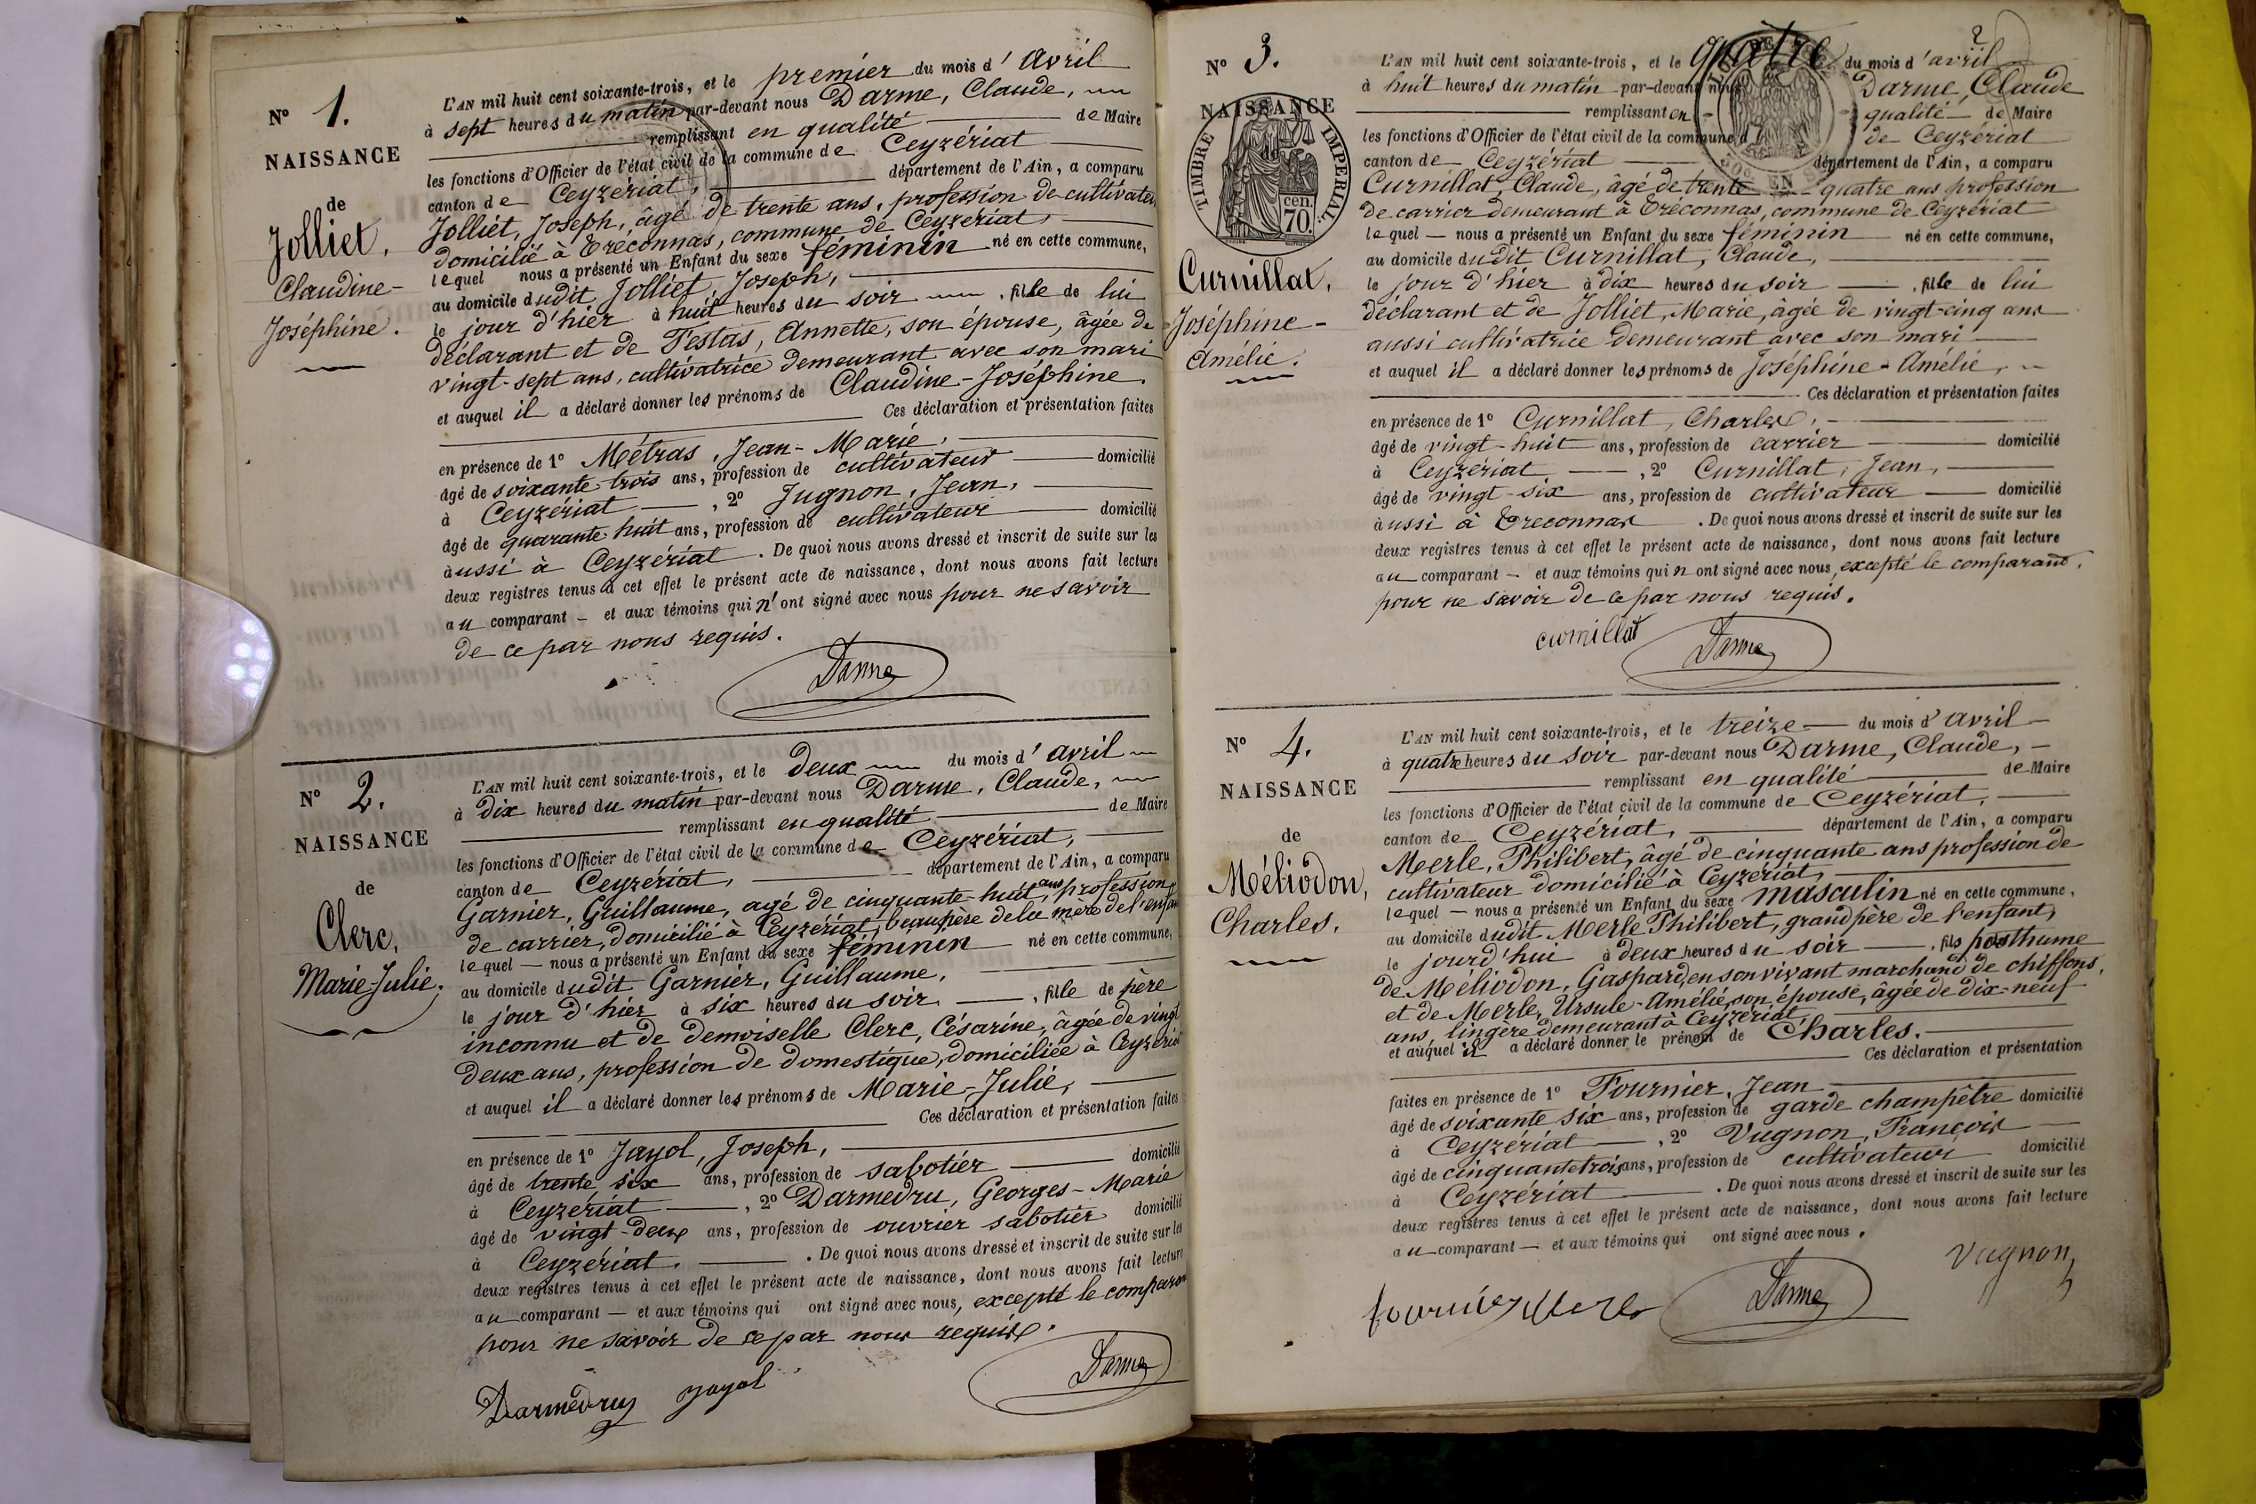 N° 1.
NAISSANCE
de
Jolliet,
Claudine-
Joséphine.
L'AN mil huit cent soixante-trois, et le premier du mois d'avril
à sept heures du matin par-devant nous Darme, Claude,
remplissant en qualité de Maire
les fonctions d'Officier de l'état civil de la commune de Ceyzériat
canton de Ceyzériat, département de l'Ain, a comparu
Jolliet, Joseph, âgé de trente ans, profession de cultivateur
domicilié à Treconnas, commune de Ceyzériat,
lequel nous a présenté un Enfant du sexe féminin né en cette commune,
au domicile dudit Jolliet, Joseph,
le jour d'hier à huit heures du soir, fille de lui
déclarant et de Testas, Annette, son épouse, âgée de
vingt-sept ans, cultivatrice demeurant avec son mari
et auquel il a déclaré donner les prénoms de Claudine-Joséphine.
Ces déclaration et présentation faites
en présence de 1° Métras, Jean-Marie,
âgé de soixante trois ans, profession de cultivateur domicilié
à Ceyzériat, 2° Jugnon, Jean,
âgé de quarante huit ans, profession de cultivateur domicilié
aussi à Ceyzériat. De quoi nous avons dressé et inscrit de suite sur les
deux registres tenus à cet effet le présent acte de naissance, dont nous avons fait lecture
au comparant - et aux témoins qui n'ont signé avec nous pour ne savoir
de ce par nous requis.
Darme
N° 2.
NAISSANCE
de
Clerc,
Marie-Julie.
L'AN mil huit cent soixante-trois, et le deux du mois d'avril
à dix heures du matin par-devant nous Darme, Claude,
remplissant en qualité de Maire
les fonctions d'Officier de l'état civil de la commune de Ceyzériat,
canton de Ceyzériat, département de l'Ain, a comparu
Garnier, Guillaume, agé de cinquante-huit ans, profession
de carrier, domicilié à Ceyzériat, beaupère de la mère de l'enfant
lequel — nous a présenté un Enfant du sexe féminin né en cette commune,
au domicile dudit Garnier, Guillaume,
le jour d'hier à six heures du soir, fille de père
inconnu et de demoiselle Clerc, Césarine, âgée de vingt
deux ans, profession de domestique, domiciliée à Ceyzériat
et auquel il a déclaré donner les prénoms de Marie-Julie,
Ces déclaration et présentation faites
en présence de 1° Jayol, Joseph,
âgé de trente six ans, profession de sabotier domicilié
à Ceyzériat, 2° Darmedru, Georges-Marie
âgé de vingt-deux ans, profession de ouvrier sabotier domicilié
à Ceyzériat. De quoi nous avons dressé et inscrit de suite sur les
deux registres tenus à cet effet le présent acte de naissance, dont nous avons fait lecture
au comparant — et aux témoins qui ont signé avec nous, excepté le comparant
pour ne savoir de ce par nous requis.
Darmedru Jayol Darme
2
N° 3.
NAISSANCE
de
TIMBRE IMPERIAL
70 cen.
Curnillat,
Joséphine-
Amélie.
L'AN mil huit cent soixante-trois, et le quatre du mois d'avril
à huit heures du matin par-devant nous Darme, Claude
remplissant en qualité de Maire
les fonctions d'Officier de l'état civil de la commune de Ceyzériat
canton de Ceyzériat département de l'Ain, a comparu
Curnillat, Claude, âgé de trente quatre ans profession
de carrier demeurant à Tréconnas, commune de Ceyzériat
lequel — nous a présenté un Enfant du sexe féminin né en cette commune,
au domicile dudit Curnillat, Claude,
le jour d'hier à dix heures du soir, fille de lui
déclarant et de Jolliet, Marie, âgée de vingt-cinq ans
aussi cultivatrice demeurant avec son mari
et auquel il a déclaré donner les prénoms de Joséphine-Amélie,
Ces déclaration et présentation faites
en présence de 1° Curnillat, Charles,
âgé de vingt-huit ans, profession de carrier domicilié
à Ceyzériat, 2° Curnillat, Jean,
âgé de vingt-six ans, profession de cultivateur domicilié
aussi à Treconnas. De quoi nous avons dressé et inscrit de suite sur les
deux registres tenus à cet effet le présent acte de naissance, dont nous avons fait lecture
au comparant — et aux témoins qui n ont signé avec nous, excepté le comparant,
pour ne savoir de ce par nous requis.
curnillat Darme
N° 4.
NAISSANCE
de
Méliodon,
Charles.
L'AN mil huit cent soixante-trois, et le treize du mois d'avril
à quatre heures du soir par-devant nous Darme, Claude,
remplissant en qualité de Maire
les fonctions d'Officier de l'état civil de la commune de Ceyzériat,
canton de Ceyzériat, département de l'Ain, a comparu
Merle, Philibert, âgé de cinquante ans profession de
cultivateur domicilié à Ceyzériat,
lequel — nous a présenté un Enfant du sexe masculin né en cette commune,
au domicile dudit Merle Philibert, grand père de l'enfant,
le jourd'hui à deux heures du soir, fils posthume
de Méliodon, Gaspard, en son vivant marchand de chiffons,
et de Merle, Ursule-Amélie, son épouse, âgée de dix-neuf
ans, lingère demeurant à Ceyzériat,
et auquel il a déclaré donner le prénom de Charles.
Ces déclaration et présentation
faites en présence de 1° Fournier, Jean
âgé de soixante six ans, profession de garde champêtre domicilié
à Ceyzériat, 2° Vugnon, François
âgé de cinquante trois ans, profession de cultivateur domicilié
à Ceyzériat. De quoi nous avons dressé et inscrit de suite sur les
deux registres tenus à cet effet le présent acte de naissance, dont nous avons fait lecture
au comparant — et aux témoins qui ont signé avec nous.
fournier Merle Darme Vugnon